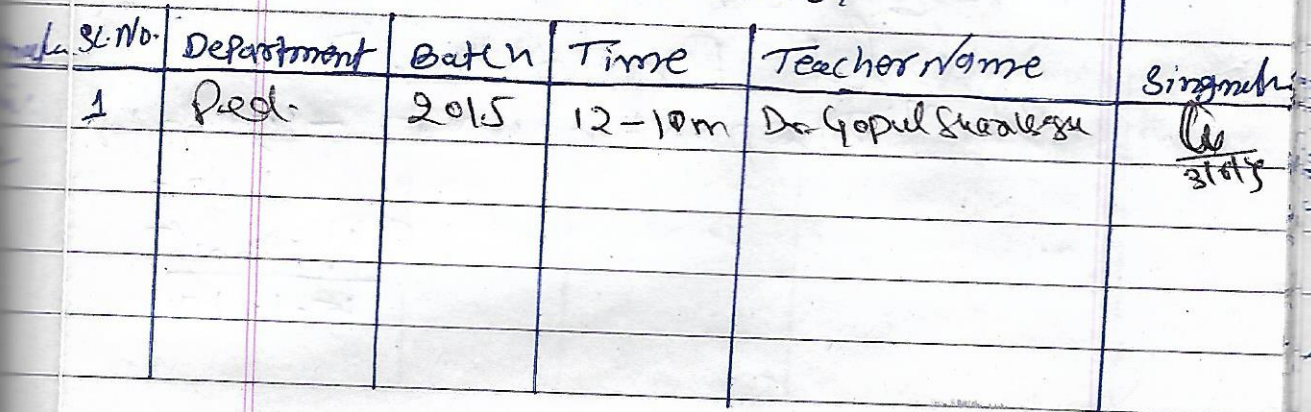 Sl. No. Department Batch Time Teacher Name Singnatu
1 Ped. 2015 12-1pm Dr. Gopul